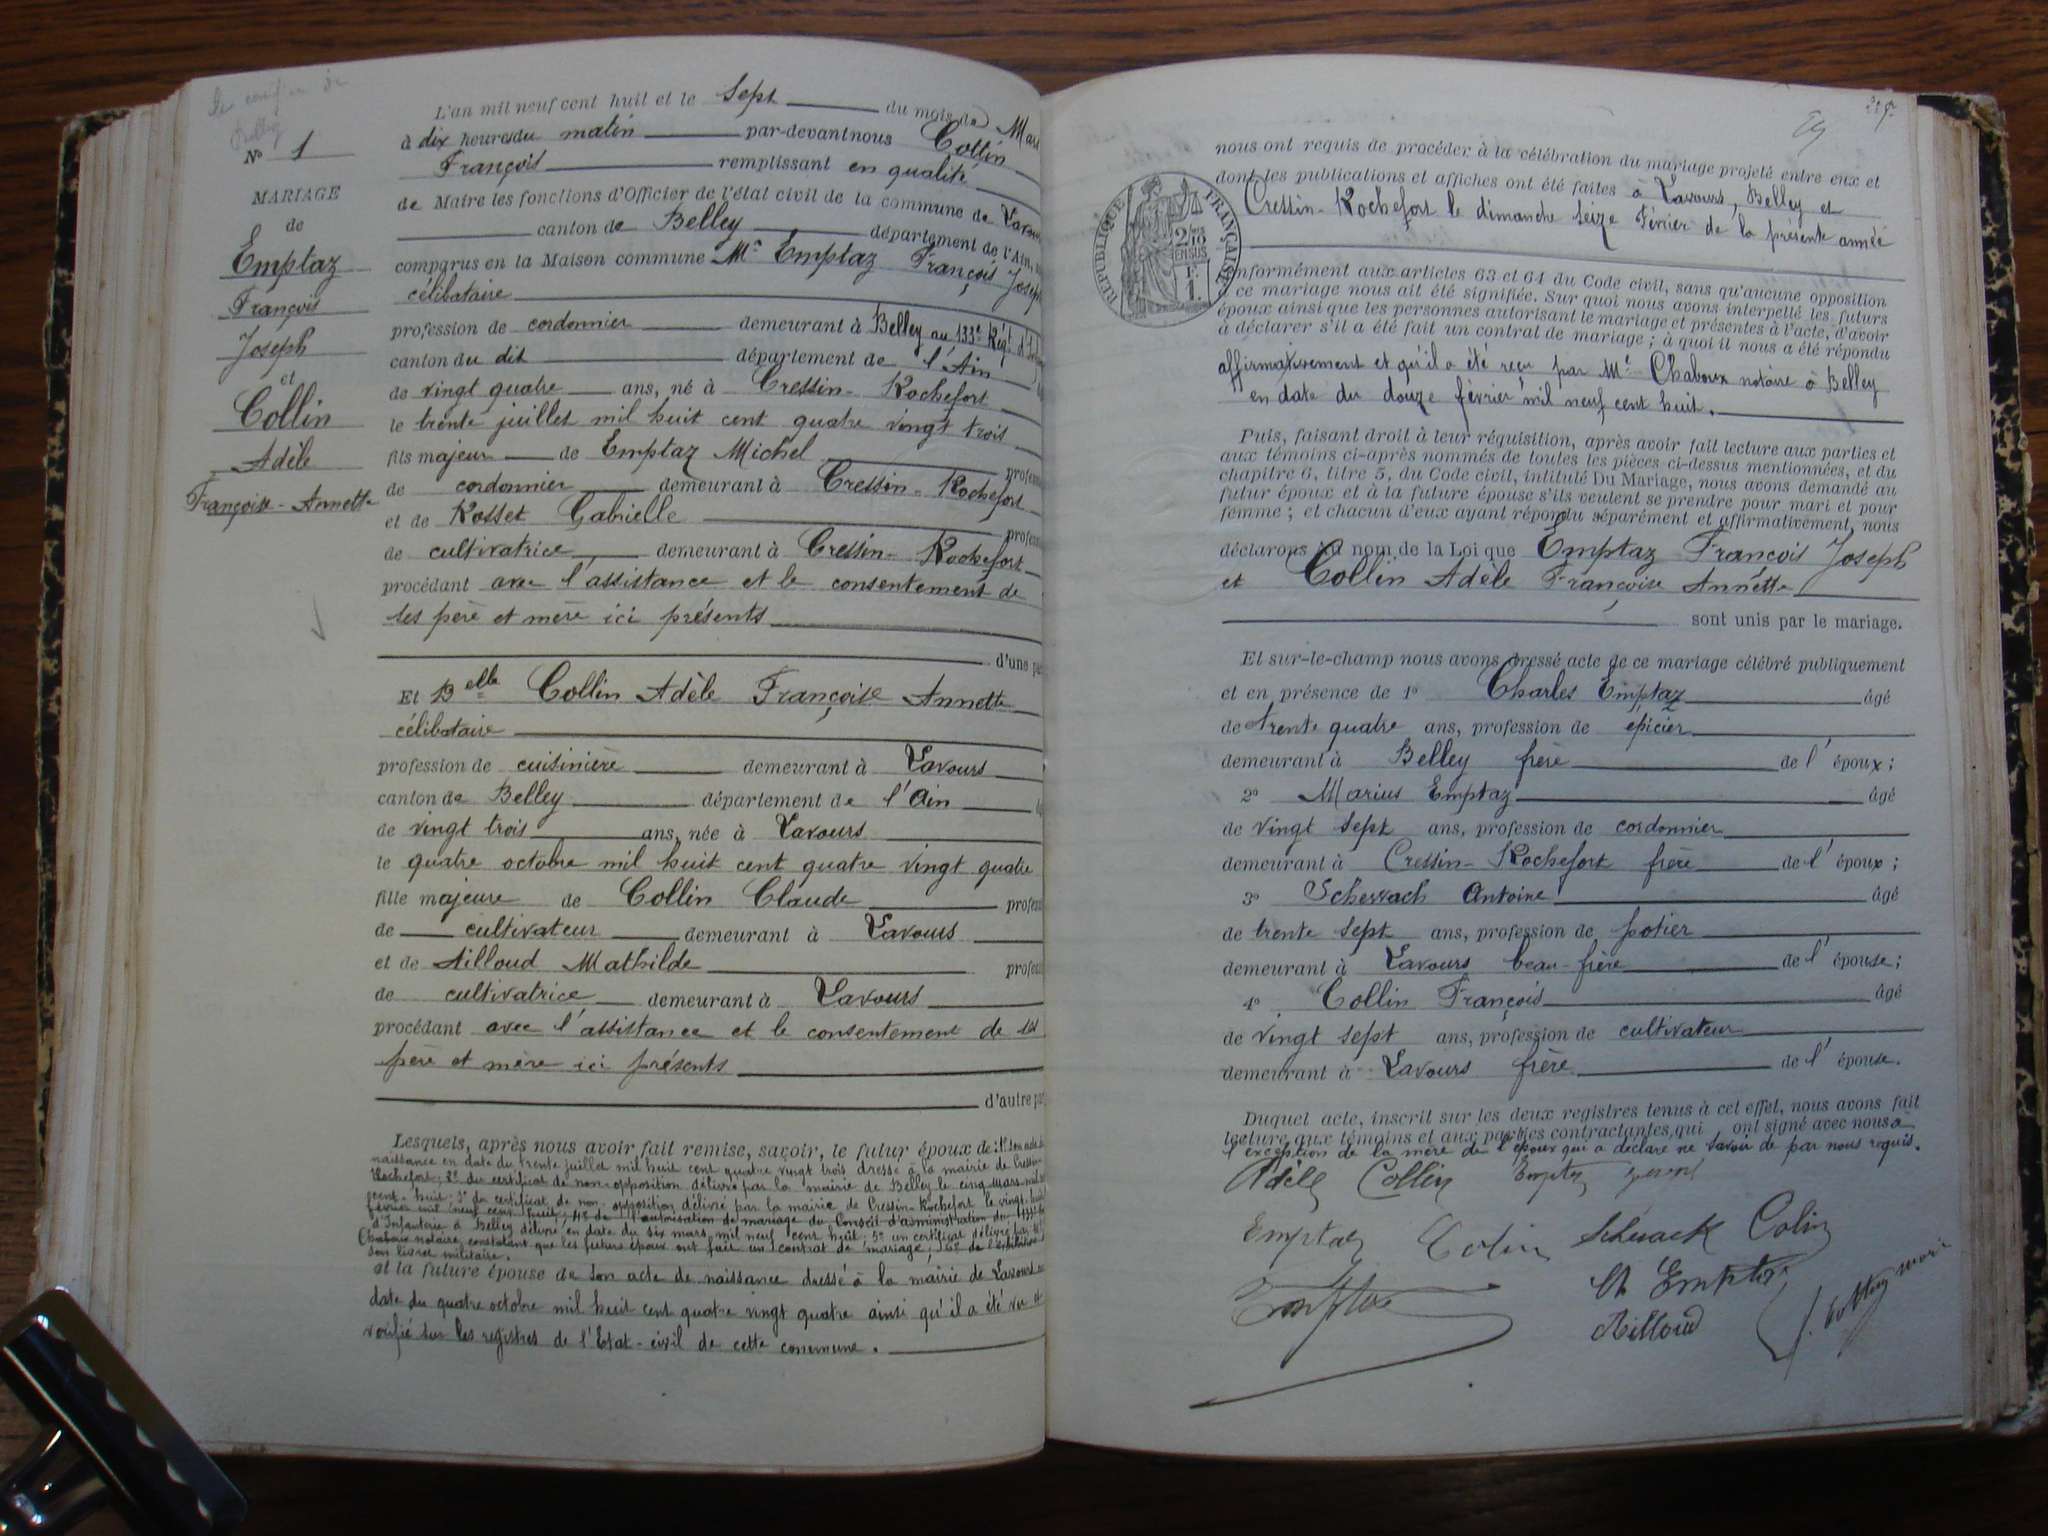 N° 1
MARIAGE
de
Emptaz
François
Joseph
et
Collin
Adèle
Françoise - Annette
L'an mil neuf cent huit et le sept du mois de Mars
à dix heures du matin par-devant nous Collin
François remplissant en qualité
de Maire les fonctions d'Officier de l'état civil de la commune de Lavours
canton de Belley département de l'Ain,
comparus en la Maison commune Mr Emptaz François Joseph
célibataire
profession de cordonnier demeurant à Belley au 133e Régt d'
canton du dit département de l'Ain
de vingt quatre ans, né à Cressin-Rochefort
le trente juillet mil huit cent quatre vingt trois
fils majeur de Emptaz Michel profess
de cordonnier demeurant à Cressin-Rochefort
et de Rosset Gabrielle profess
de cultivatrice demeurant à Cressin-Rochefort
procédant avec l'assistance et le consentement de
ses père et mère ici présents
d'une pa
Et Delle Collin Adèle Françoise Annette
célibataire
profession de cuisinière demeurant à Lavours
canton de Belley département de l'Ain
de vingt trois ans, née à Lavours
le quatre octobre mil huit cent quatre vingt quatre
fille majeure de Collin Claude profess
de cultivateur demeurant à Lavours
et de Ailloud Mathilde profess
de cultivatrice demeurant à Lavours
procédant avec l'assistance et le consentement de ses
père et mère ici présents
d'autre pa
Lesquels, après nous avoir fait remise, savoir, le futur époux de: 1° son acte de
naissance en date du trente juillet mil huit cent quatre vingt trois dressé à la mairie de Cressin
Rochefort; 2° du certificat de non-opposition délivré par la mairie de Belley le cinq mars mil neuf
cent-huit; 3° du certificat de non-opposition délivré par la mairie de Cressin-Rochefort le vingt-huit
février mil neuf cent huit; 4° de l'autorisation de mariage du Conseil d'administration du 133e
d'Infanterie à Belley délivré en date du six mars mil neuf cent huit; 5° un certificat délivré par Me
Chaboux notaire constatant que les futurs époux ont fait un contrat de mariage; 6° de l'exhibition
son livret militaire.
et la future épouse de son acte de naissance dressé à la mairie de Lavours en
date du quatre octobre mil huit cent quatre vingt quatre ainsi qu'il a été vu et
vérifié sur les registres de l'Etat-civil de cette commune.
RÉPUBLIQUE FRANÇAISE
2/10
EN SUS
nous ont requis de procéder à la célébration du mariage projeté entre eux et
dont les publications et affiches ont été faites à Lavours, Belley et
Cressin-Rochefort le dimanche seize Février de la présente année
conformément aux articles 63 et 64 du Code civil, sans qu'aucune opposition
à ce mariage nous ait été signifiée. Sur quoi nous avons interpellé les futurs
époux ainsi que les personnes autorisant le mariage et présentes à l'acte, d'avoir
à déclarer s'il a été fait un contrat de mariage; à quoi il nous a été répondu
affirmativement et qu'il a été reçu par Me Chaboux notaire à Belley
en date du douze février mil neuf cent huit.
Puis, faisant droit à leur réquisition, après avoir fait lecture aux parties et
aux témoins ci-après nommés de toutes les pièces ci-dessus mentionnées, et du
chapitre 6, titre 5, du Code civil, intitulé Du Mariage, nous avons demandé au
futur époux et à la future épouse s'ils veulent se prendre pour mari et pour
femme; et chacun d'eux ayant répondu séparément et affirmativement, nous
déclarons au nom de la Loi que Emptaz François Joseph
et Collin Adèle Françoise Annette
sont unis par le mariage.
Et sur-le-champ nous avons dressé acte de ce mariage célébré publiquement
et en présence de 1° Charles Emptaz âgé
de trente quatre ans, profession de épicier
demeurant à Belley frère de l'époux;
2° Marius Emptaz âgé
de vingt sept ans, profession de cordonnier
demeurant à Cressin-Rochefort frère de l'époux;
3° Antoine âgé
de trente sept ans, profession de potier
demeurant à Lavours beau-frère de l'épouse;
4° Collin François âgé
de vingt sept ans, profession de cultivateur
demeurant à Lavours frère de l'épouse.
Duquel acte, inscrit sur les deux registres tenus à cet effet, nous avons fait
lecture aux témoins et aux parties contractantes, qui ont signé avec nous à
l'exception de la mère de l'époux qui a déclaré ne savoir de par nous requis.
Adèle Collin Emptaz
Emptaz Colin Schuack Colin
Emptaz
Ailloud